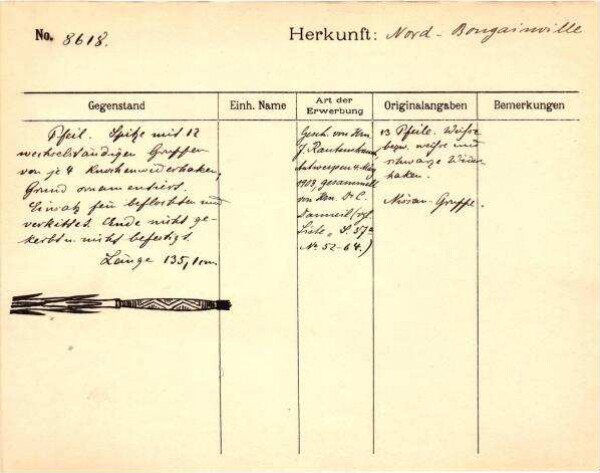 No. 8618.
Herkunft: Nord - Bougainville
Gegenstand
Einh. Name
Art der Erwerbung
Originalangaben
Bemerkungen
Pfeil. Spitze mit 12
wechselständigen Gruppen
von je 4 Knochenwiderhaken,
Grund ornamentiert.
Einsatz fein beflochten und
verkittet. Ende nicht ge-
kerbt u. nicht befestigt.
Länge 135,1 cm.
Gesch. von Hrn
J. Rautenstrauch,
Antwerpen
1909, gesammelt
von Hrn. Dr C.
Liste, S. 57a
No 52-64.)
13 Pfeile.
bezw. weisse und
schwarze Wider-
haken.
Nissan-Gruppe.